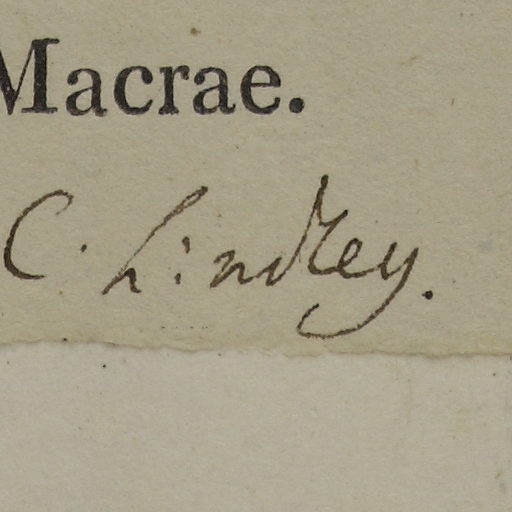 Macrae.
C. Lindley.